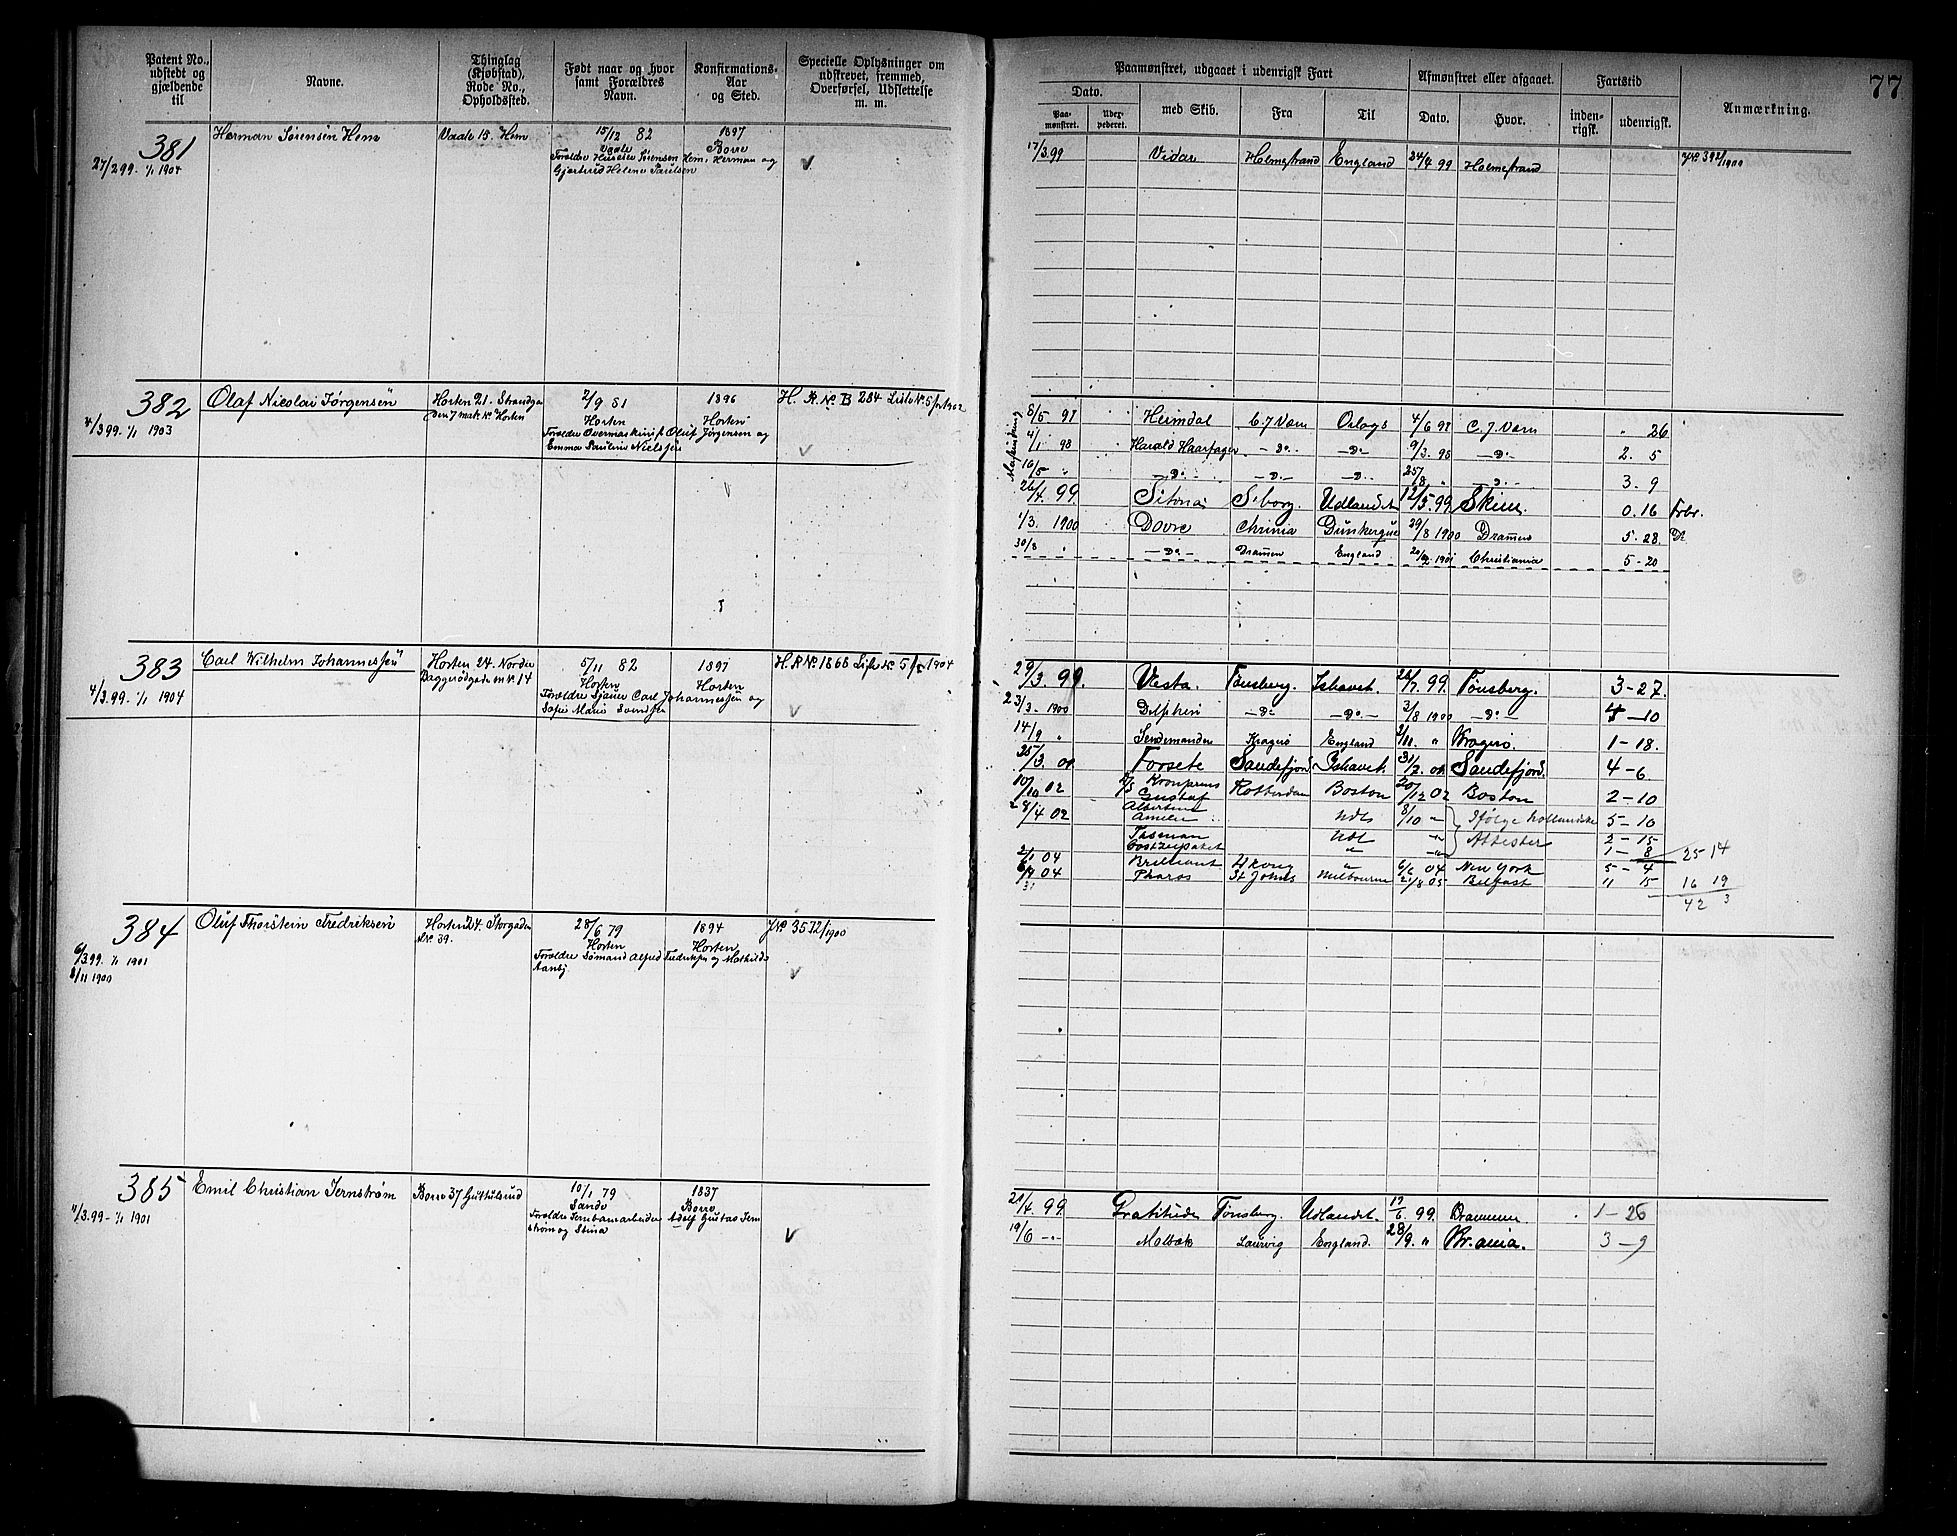 77
Patent No., udstedt og gjældende til
Navne.
Thinglag (Kjøbstad), Rode No., Opholdssted.
Født naar og hvor samt Forældres Navn.
Konfirmations-Aar og Sted.
Specielle Oplysninger om udskrevet, fremmed, Overførsel, Udslettelse m. m.
Paamønstret, udgaaet i udenrigsk Fart
Afmønstret eller afgaaet.
Fartstid
Anmærkning.
Dato.
Paamønstret.
Udexpederet.
med Skib.
Fra
Til
Dato.
Hvor.
indenrigsk.
udenrigsk.
381
27/2 99. 1/1 1904
Herman Sørensen Hem
Vaale 15. Hem
15/12 82
Vaale
Forældre Huseier Sørensen Hem, Herman og
Gjertrud Helene Paulsen
1897
Borre
17/3 99 Vidar Holmestrand England 24/4 99 Holmestrand
JNo 392/1900
382
4/3 99. 1/1 1903
Olaf Nicolai Jørgensen
Horten 21. Strandga
den 7 mat. No Horten
2/9 81
Horten
Forældre Overmaskinist Oluf Jørgensen og
Emma Pauline Nielsen
1896
Horten
H. R. No. B 284 Liste No. 5 1902
8/5 97 Heimdal C. J Værn Oslogs 4/6 97 C. J Værn " 26
4/1 98 Harald Haarfager - Do - - Do - 9/3 98 - Do - 2. 5
16/5 " - Do - - Do - - Do 25/8 " - Do - 3. 9
26/4 99 Sitona Udlandet 12/5 99 Skien 0. 16 Forbr.
4/3. 1900 Dovre Chrinia Dunkerque 29/8 1900 Dramen 5 - 28.
30/8 " - Do - Drammen England 1901 Christiania 5 - 20
383
4/3. 99. 1/1 1904
Carl Wilhelm Johannessen
Horten 24. Nordre
Baggerødgade m No. 14
5/11 82
Horten
Forældre Sjauer Carl Johannessen og
Sofie Marie Svendsen
1897
Horten
H. R No. 1868 Liste No. 5 1904
29/3. 99. Vesta Tønsberg. Ishavet. 99. Tønsberg. 3 - 27.
23/3 - 1900 Delphin - Do - - Do - 3/8 1900 - Do - 4 - 10
14/9 " Kragerø England 2/11. " Kragerø. 1 - 18.
25/3 01 Forsete Sandefjord Ishavet. 31/7. 01 Sandefjord. 4 - 6
10/10 02 Kronprins Gustaf Rotterdam Boston 20/12 02 Boston 2 - 10
24/4 02 Albertine Amelie Udl 8/10 " Ifølge hollandske 5 - 16
Tasman Udl " Attester 2 - 15
Oostzeepolder " " 1 - 8 25 14
2/1 04 Brilliant " 6/6 04 New York 5 - 4
04 Pharos St Johns Melbourne 21/8 05 Belfast 11 15 16 19
42 3
384
6/3 99. 1/1 1901
8/11 1900
Oluf Thorstein Fredriksen
Horten 24. Storgaden
No. 39.
28/6 79
Horten
Forældre Sømand Alfred Fredriksen og Mathilde
Aanby
1894
Horten
JNo 3532/1900
385
4/3. 99 - 1/1 1901
Emil Christian Jernstrøm
Borre 37 Guttulsrud
10/1 79
Sande
Forældre Jernbanearbeider Adolf Gustav Jern
strøm og Stina
1837
Borre
21/4. 99. Gratitude Tønsberg Udlandet. 19/6 99. Drammen. 1 - 26
19/6 - " - Molbæk Laurvig England. 28/9. " Kr.ania. 3 - 9